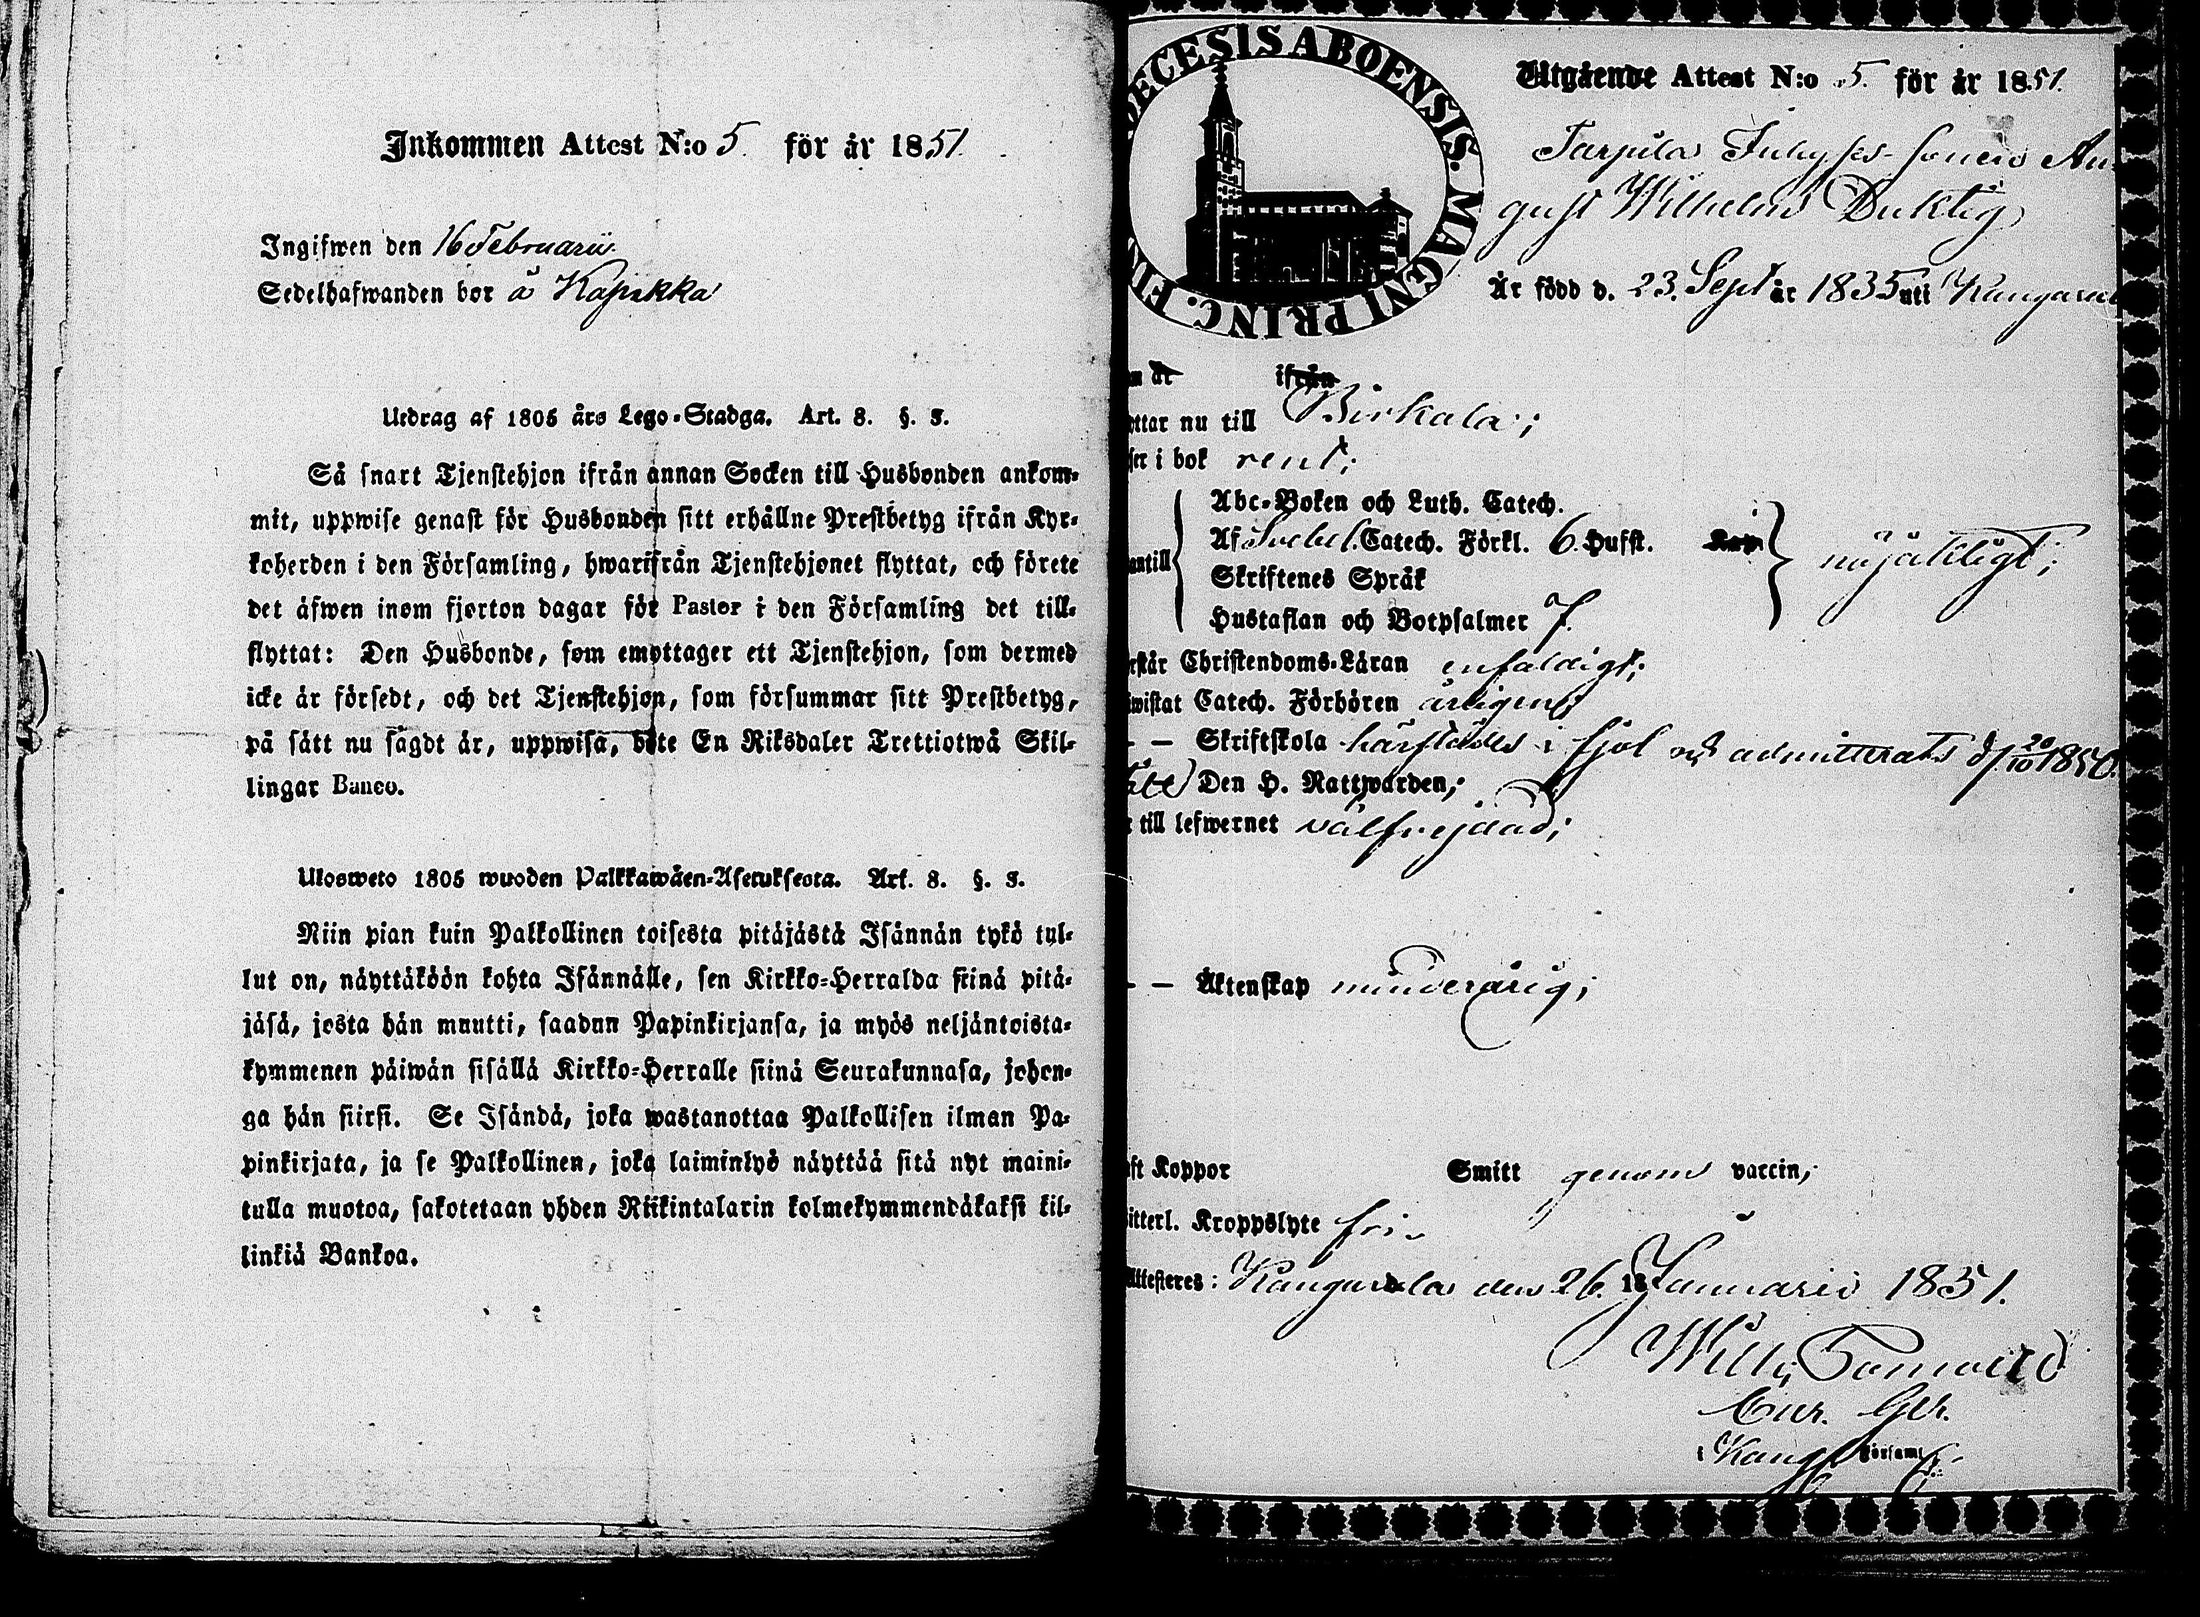 Inkommen Attest N:o 5. för år 1851.
Ingifwen den 16 Februarii
Sedelhafwanden bor å Kapakka
Utdrag af 1805 års Lego-Stadga. Art. 8. §. 3.
Så snart Tjenstehjon ifrån annan Socken till Husbonden ankom-
mit, uppwise genast för Husbonden sitt erhållne Prestbetyg ifrån Kyr-
koherden i den Församling, hwarifrån Tjenstehjonet flyttat, och förete
det äfwen inom fjorton dagar för Pastor i den Församling det till-
flyttat: Den Husbonde, som emottager ett Tjenstehjon, som dermed
icke är försedt, och det Tjenstehjon, som försummar sitt Prestbetyg,
på sätt nu sagdt är, uppwisa, böte En Riksdaler Trettiotwå Skil-
lingar Banco.
Ulosweto 1805 wuoden Palkkawäen-Asetuksesta. Art. 8. §. 3.
Niin pian kuin Palkollinen toisesta pitäjästä Isännän tykö tul-
lut on, näyttäköön kohta Isännälle, sen Kirkko-Herralda siinä pitä-
jäsä, josta hän muutti, saadun Papinkirjansa, ja myös neljäntoista-
kymmenen päiwän sisällä Kirkko-Herralle siinä Seurakunnasa, johon-
ga hän siirsi. Se Isändä, joka wastanottaa Palkollisen ilman Pa-
pinkirjata, ja se Palkollinen, joka laiminlyö näyttää sitä nyt maini-
tulla muotoa, sakotetaan yhden Riikintalarin kolmekymmendäkaksi kil-
linkiä Bankoa.
ECESIS ABOENSIS. MAGNI PRINC. FIN
Utgående Attest N:o 5. för år 1851.
Tarpila Inhyses-sonen Au-
gust Wilhelm Duktig
Är född d. 23. Sept år 1835 uti Kangasal
är ifrån
ttar nu till Birkala;
ser i bok rent;
Abc-Boken och Luth. Catech.
Af Svebel. Catech. Förkl. 6. Hufst. Kap
antill
Skriftenes Språk
Hustaflan och Botpsalmer 7.
nöjaktigt;
rstår Christendoms-Läran enfaldigt;
iwistat Catech. Förhören årligen;
— Skriftskola härstädes i fjol och admitterats d. 20/10 1850.
Den H. Nattwarden;
till lefwernet välfrejdad;
— Äktenskap minderårig;
ft Koppor Smitt genom vaccin;
itterl. Kroppslyte fri.
Attesteres: Kangasala den 26. 18 Januarii 1851.
Wilh.
Cur. Ger.
i Kang Församl.